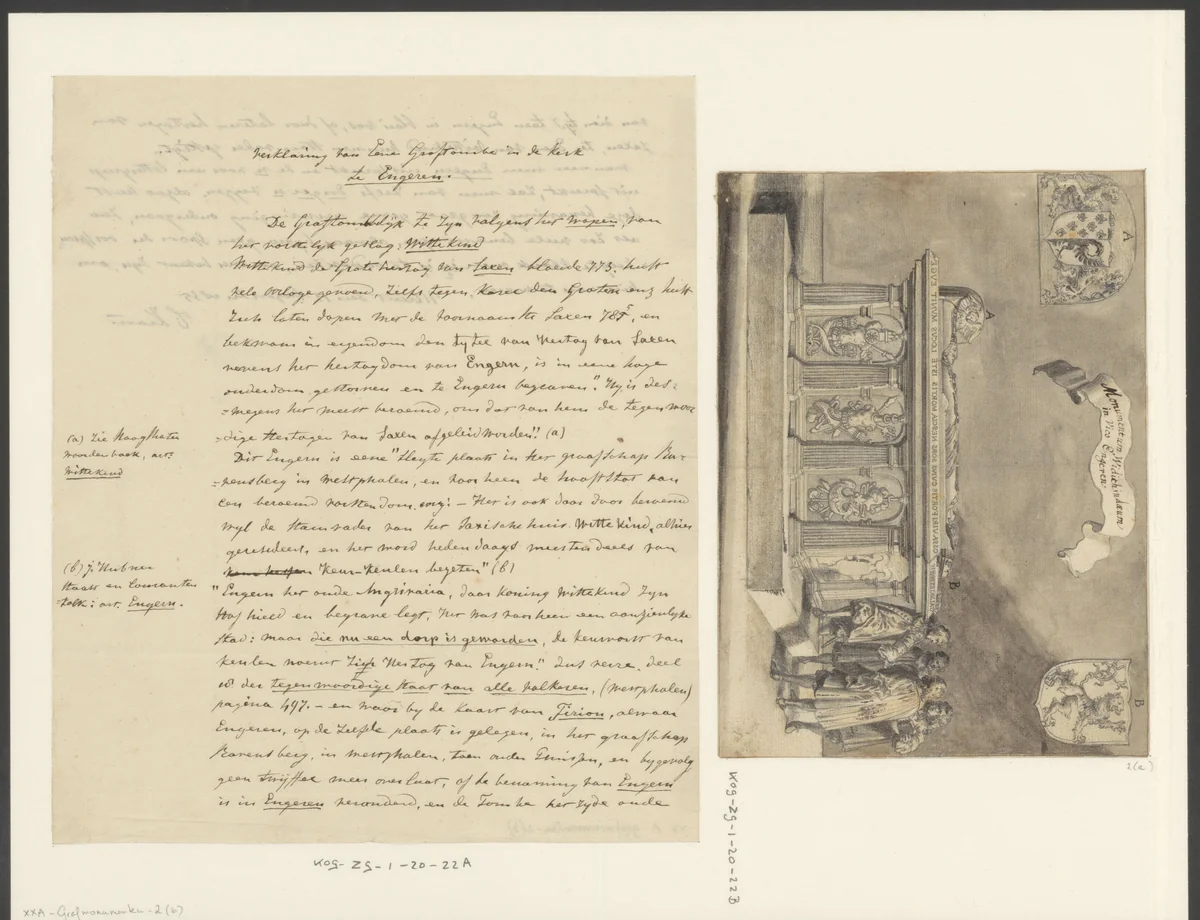 Verklaring van Eene Graftombe in de Kerk
te Engeren.
De Graftom blijk te zyn volgens het wapen, van
het vorstelyk geslag: Wittekind
Wittekind de Grote hertog van Saxen bloeide 773, heeft
vele oorloge gevoerd, zelfs tegen Karel den Groten enz heeft
Zich laten dopen met de voornaamste Saxen 785, en
bekwam in eigendom den tytel van Hertog van Saxen
nevens het hertogdom van Engern, is in eene hoge
ouderdom gestorven en te Engern begraven". Hy is des=
=wegens het meest beroemd, om dat van hem de tegenwoor
=dige Hertogen van Saxen afgeleid worden". (a)
(a) Zie Hoogstraten
woordenboek, art:
Wittekind
Dit Engern is eene "Slegte plaats in het graafschap Ra=
=vensberg in Westphalen, en voorheen de hoofdstad van
een beroemd vorstendom. enz: - Het is ook daar door beroemd
wyl de Stamvader van het Saxische huis Wittekind, alhier
geresideert, en het word hedendaags meestendeels van
Keur-Keulen bezeten" (b)
(b) J. Hubner
Staats en Couranten
=tolk: art. Engern.
"Engern het oude Angrivaria, daar koning Wittekind Zyn
Hof hield en begrave legt, het was voorheen een aanzienlyke
Stad: maar die nu een dorp is geworden, de keurvorst van
keulen noemt Zigh Hertog van Engern." dus verre. deel
der tegenwoordige Staat van alle volkeren, (Westphalen)
pagina 497. - en waar by de kaart van Tirion, alwaar
Engeren, op de Zelfde plaats is gelegen, in het graafschap
Ravensberg, in Westphalen, toen onder Pruissen, en bygevolg
geen twyffel meer overlaat, of de benaming van Engern
is in Engeren veranderd, en de Tombe her Zyde oude
KOG-ZG-1-20-22A
XXA - Grafmonumenten - 2(a)
A
Monumentum Widichindæum
in Vico Engeren
B
B
A
2(a)
KOG-ZG-1-20-22B